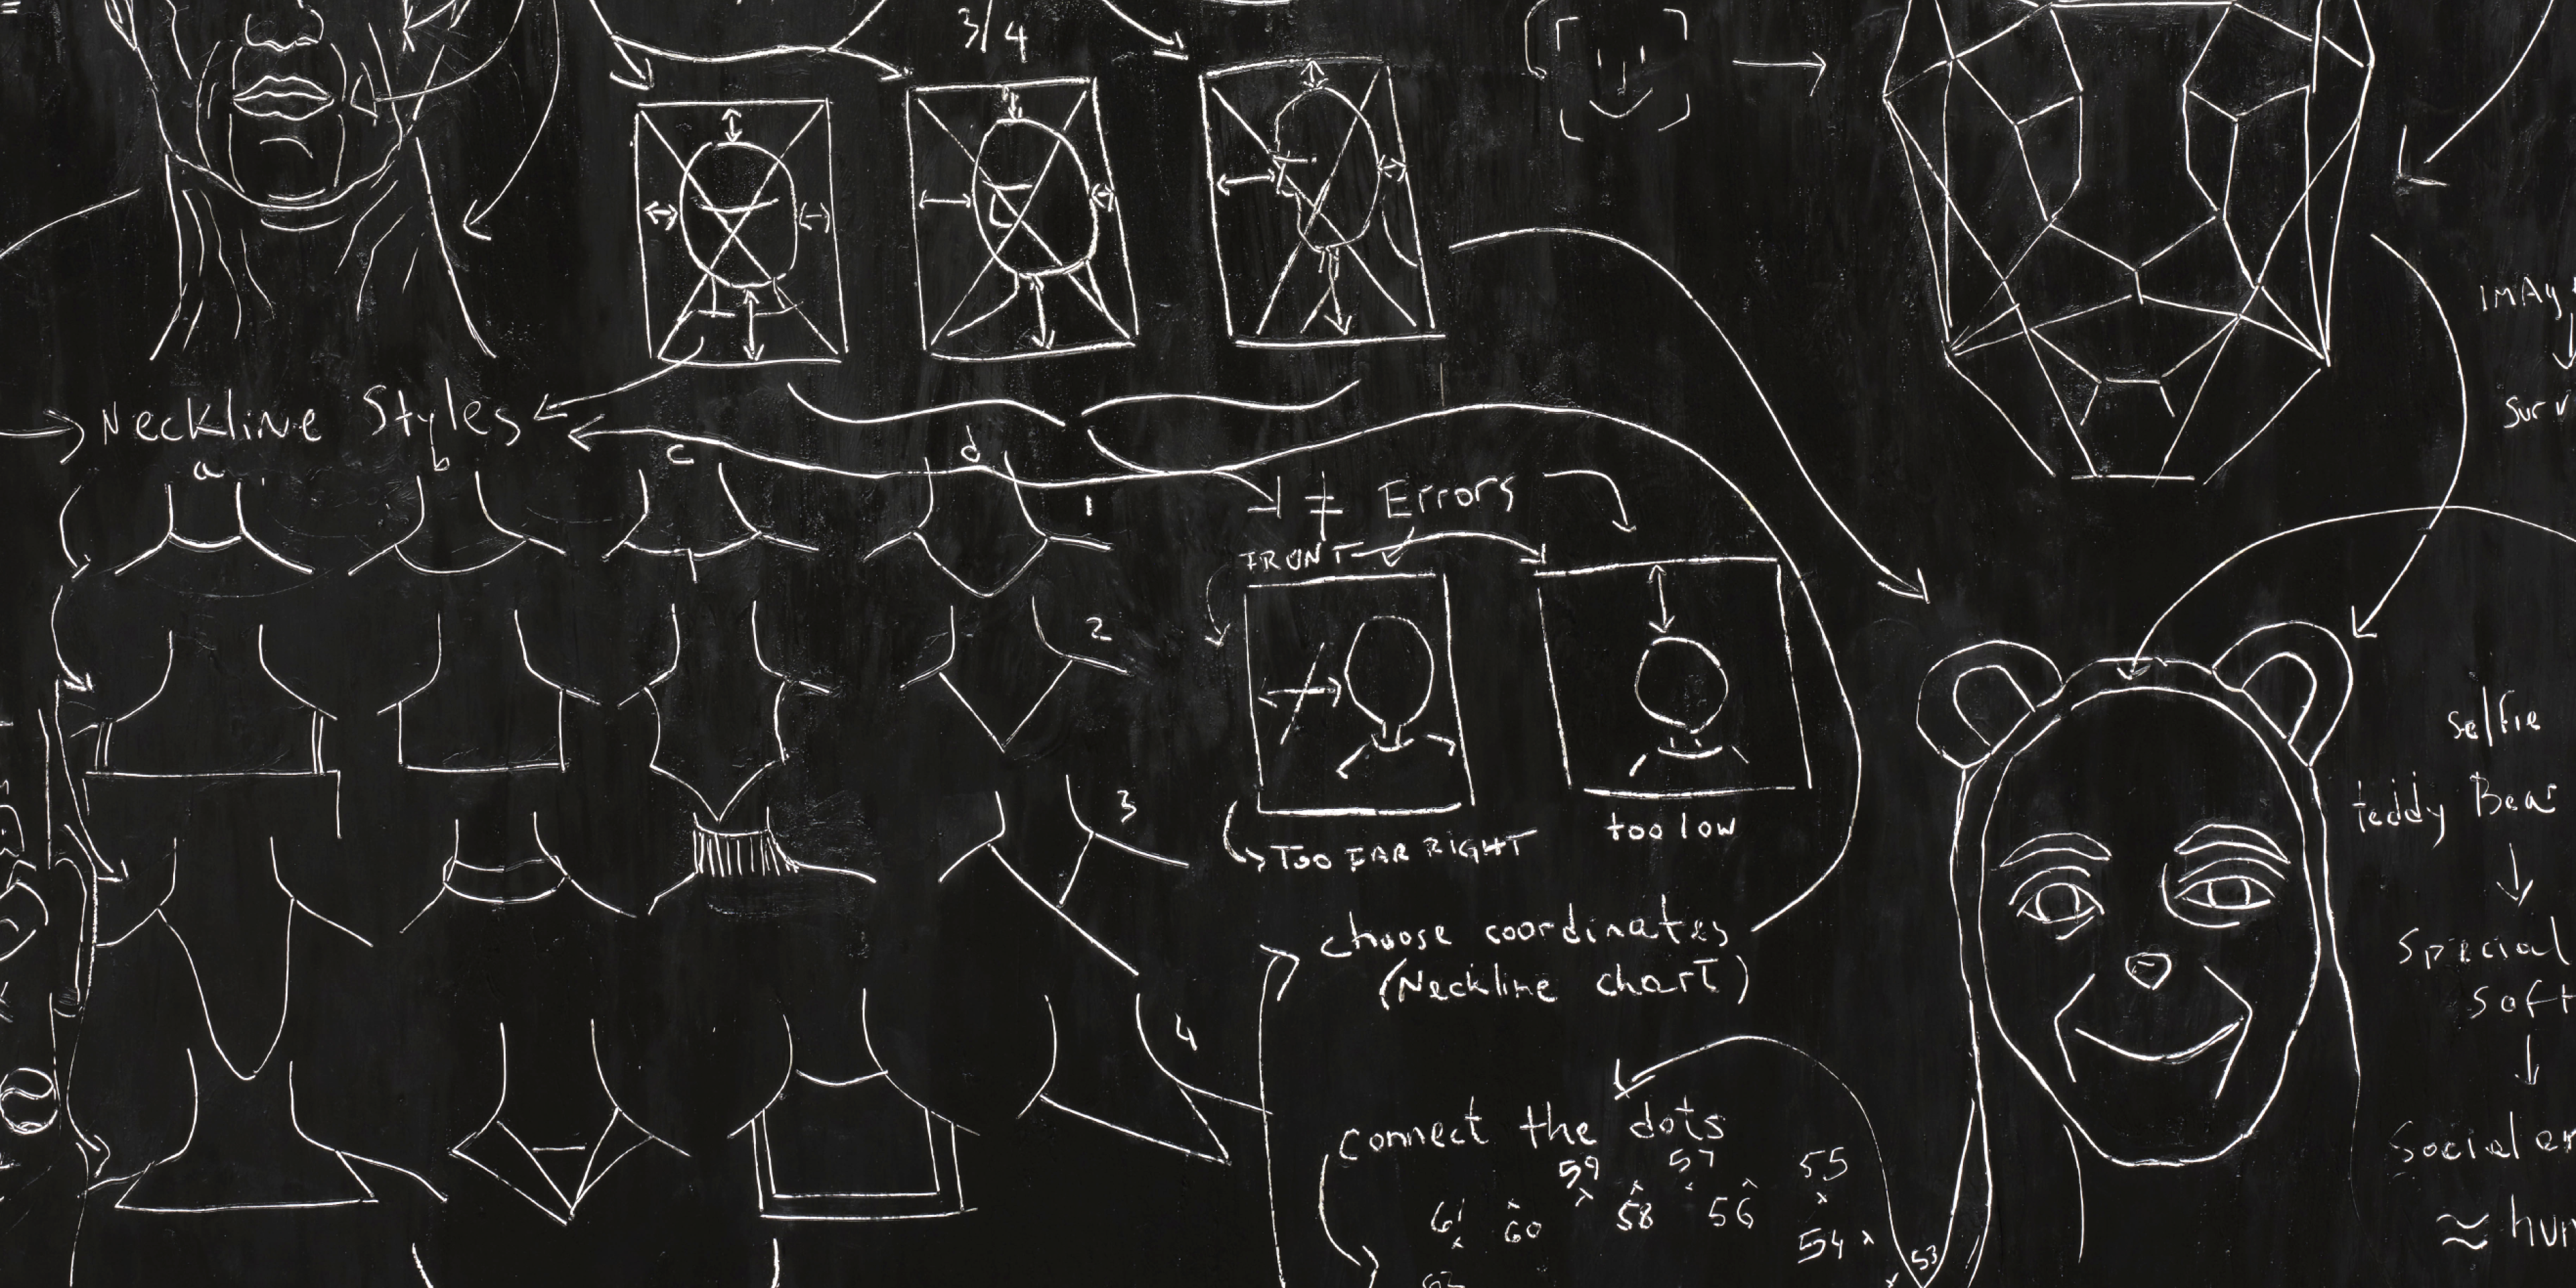 3/4
Neckline Styles
a
b
c
d
1
2
3
4
≠ Errors
FRONT
TOO FAR RIGHT
too low
choose coordinates
(Neckline chart)
connect the dots
59
57
55
61
60
58
56
54
53
62
IMAG
Surv
selfie
teddy Bear
Special
Soft
Social
≈ hum